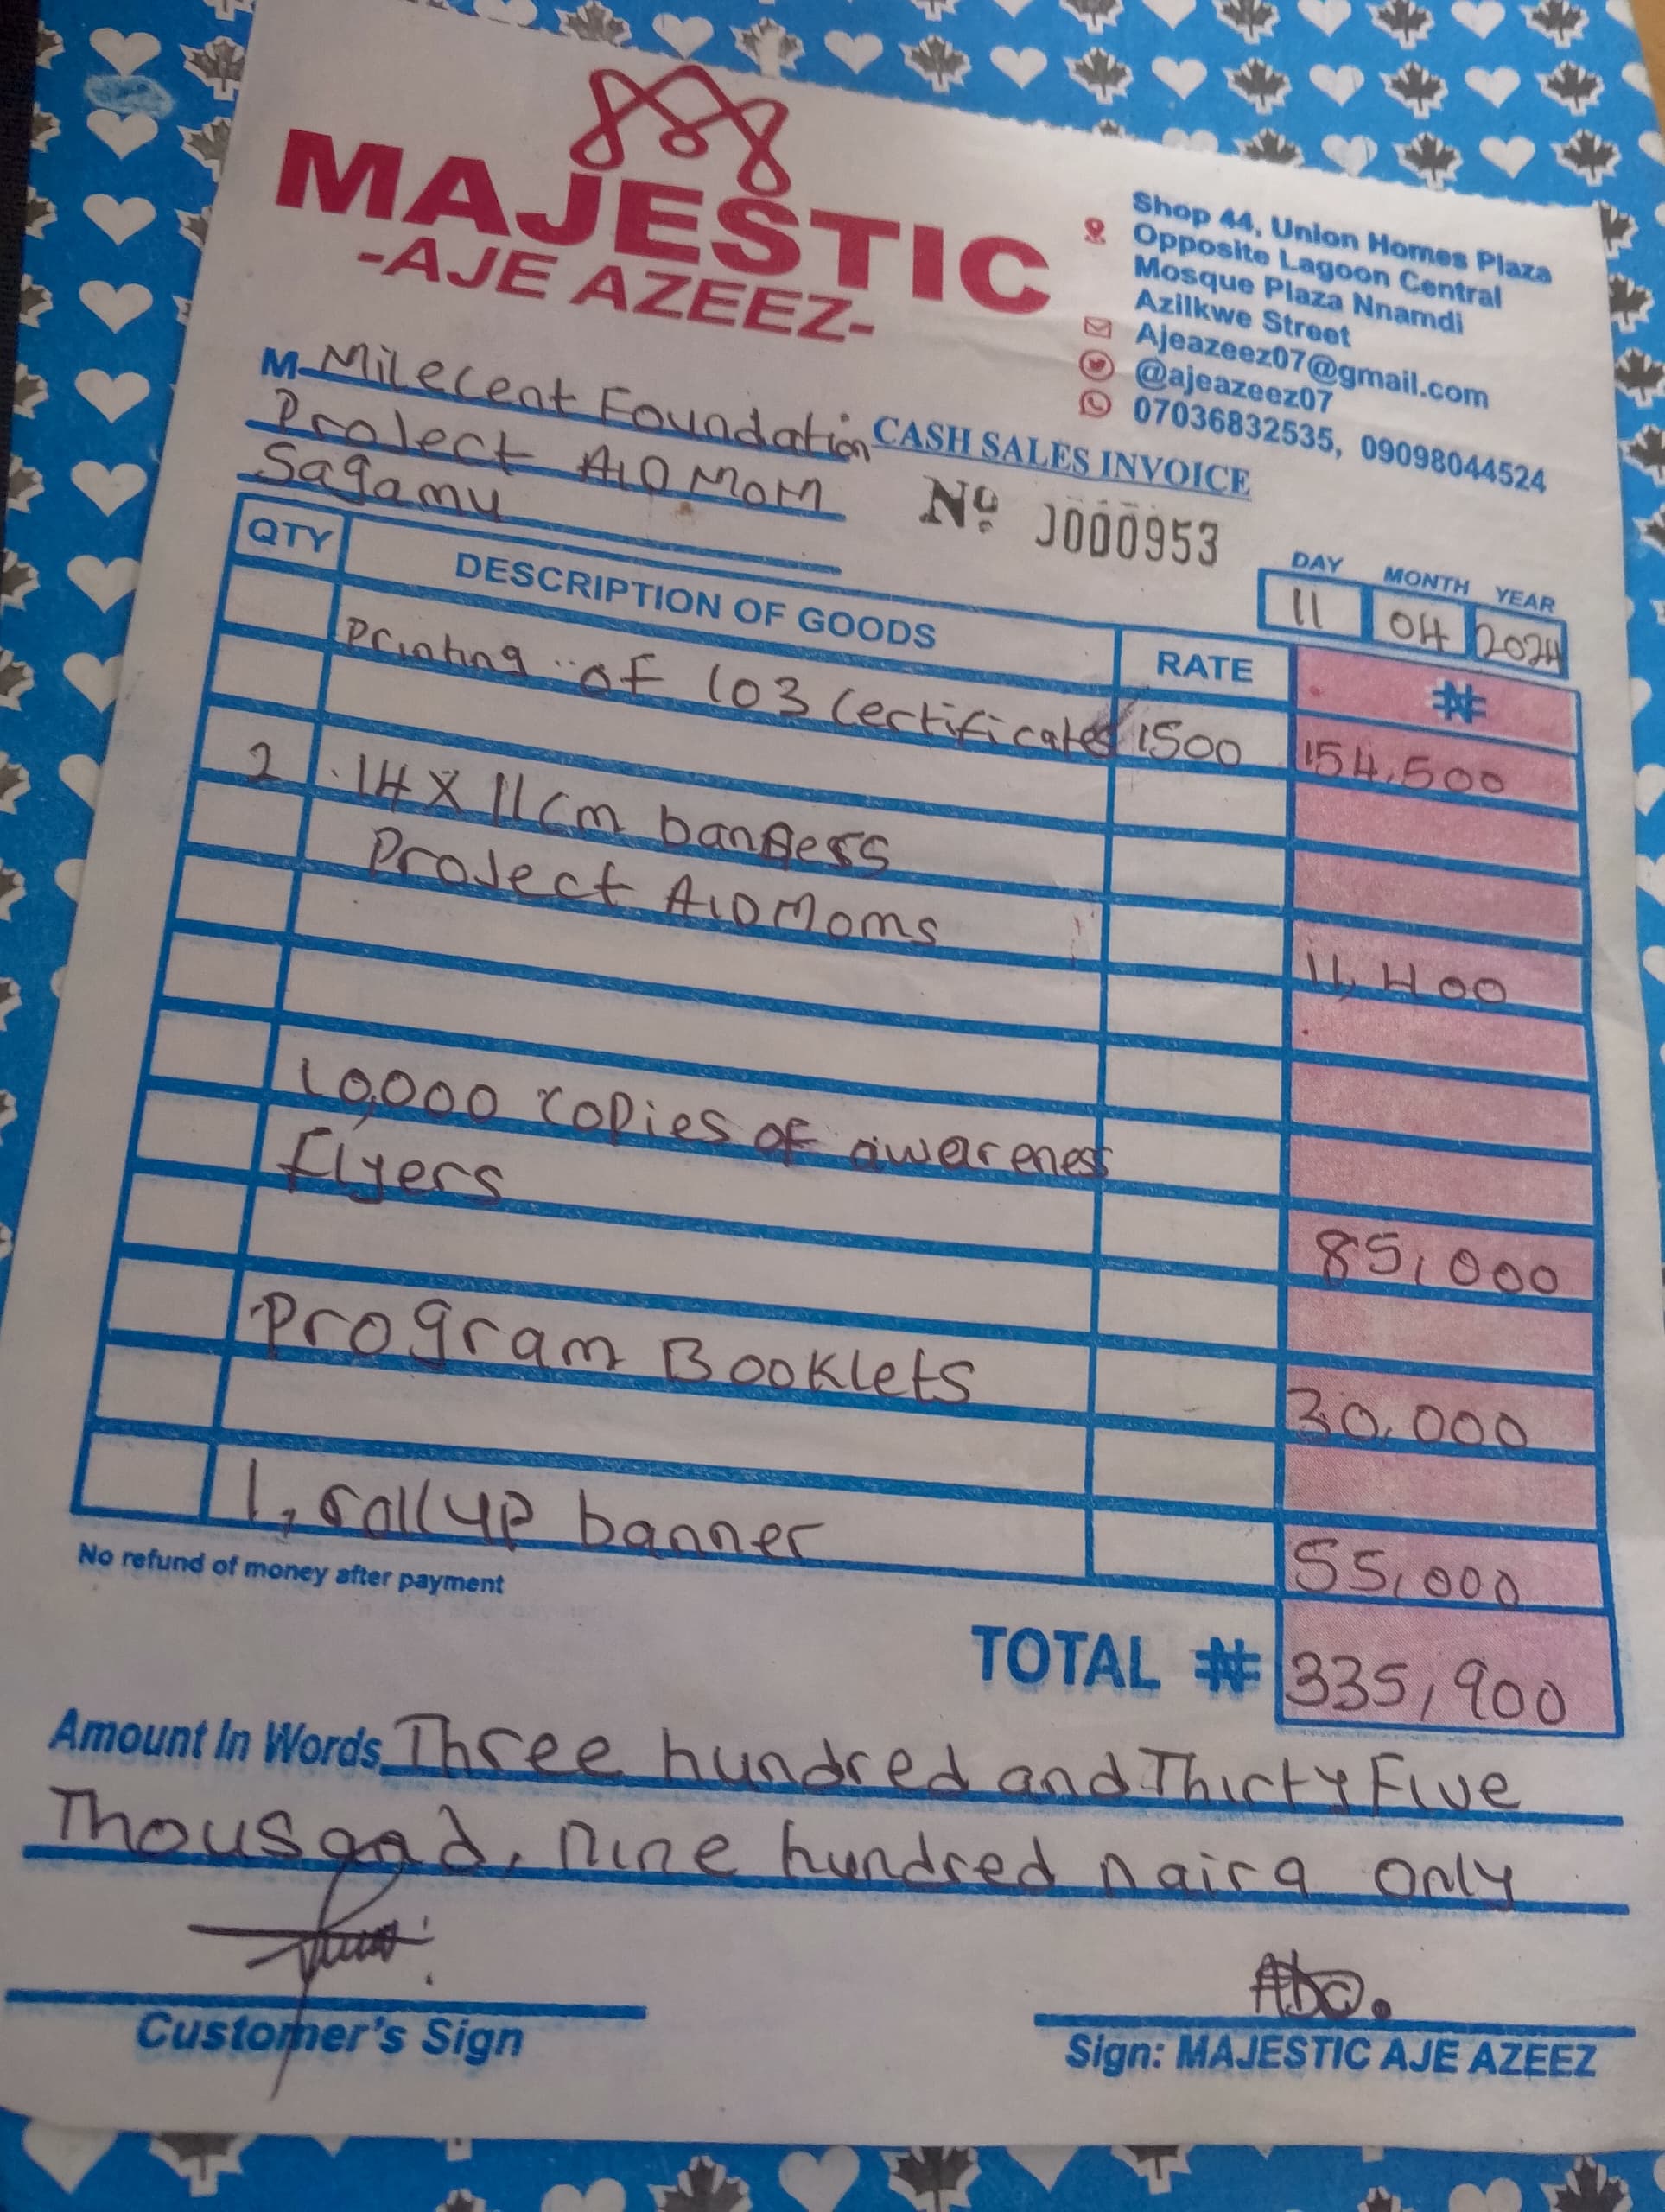 MAJESTIC
-AJE AZEEZ-
Shop 44, Union Homes Plaza
Opposite Lagoon Central
Mosque Plaza Nnamdi
Azilkwe Street
Ajeazeez07@gmail.com
@ajeazeez07
07036832535, 09098044524
M Milecent Foundation
Project AID MOM
Sagamu
CASH SALES INVOICE
Nº J000953
DAY MONTH YEAR
11 04 2024
QTY DESCRIPTION OF GOODS RATE ₦
Printing of 103 Certificates 1500 154,500
2 14 X 11cm banners
Project AID Moms
11,400
10,000 copies of awareness
flyers
85,000
Program Booklets 30,000
1, rollup banner 55,000
No refund of money after payment
TOTAL ₦ 335,900
Amount In Words Three hundred and Thirty Five
Thousand, nine hundred naira only
Customer's Sign
Abc.
Sign: MAJESTIC AJE AZEEZ